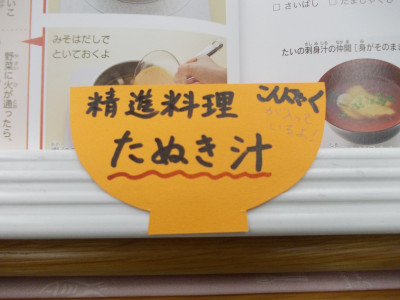 いこ
みそはだしで
といておくよ
野菜に火が通ったら、
□ さいばし
たいの刺身汁の仲間
精進料理
こんにゃく
が入って
いるよ!
たぬき汁